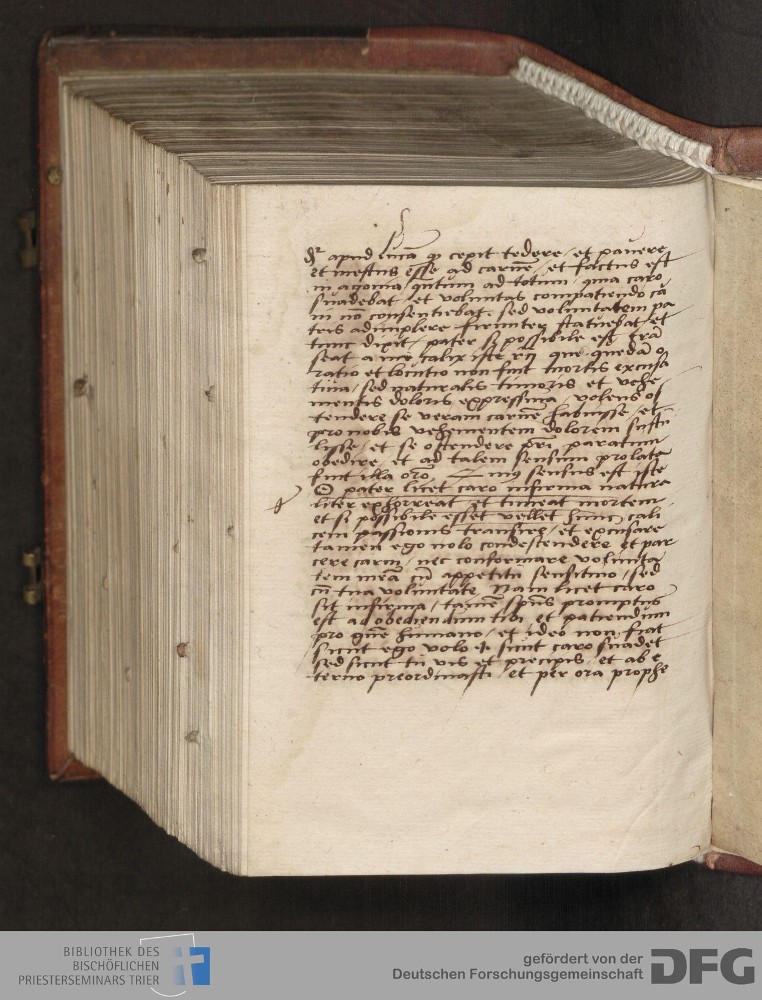 dr apud lucā ꝙ cepit tedere / et pauere
et mestus esse ad carnē / et factus est
in agonia / qntum ad totum / quia caro
suadebat / et voluntas compatiendo ca
ni nō consentiebat. sed voluntatem pa
tris adimplere firmiter statuebat / et
tunc dixit / pater si possibile est trā
seat a me calix iste rc que quedā o
ratio et locutio non fuit mortis excusa
tiua / sed naturalis timoris et vehe
mentis doloris expressiua / volens os
tendere se veram carnē habuisse / et
pro nobis vehementem dolorem susti
lisse / et se ostendere pri paratum
obedire / et ad talem sensum prolata
fuit illa orō. Cuius sensus est iste
O pater licet caro infirma natura
liter exhorreat et timeat mortem
et si possibile esset vellet hunc cali
cem passionis transire / et excusare
tamen ego nolo condescendere et par
cere carni / nec conformare volunta
tem meā cū appetitu sensitiuo / sed
cū tua voluntate Nam licet caro
sit infirma / tamē spūs promptus
est ad obediendum tibi et patiendum
pro gnē humano / et ideo non fiat
sicut ego volo .i. sicut caro suadet
sed sicut tu vis et precipis / et ab e
terno preordinasti / et per ora prophe
BIBLIOTHEK DES
BISCHÖFLICHEN
PRIESTERSEMINARS TRIER
gefördert von der
Deutschen Forschungsgemeinschaft
DFG